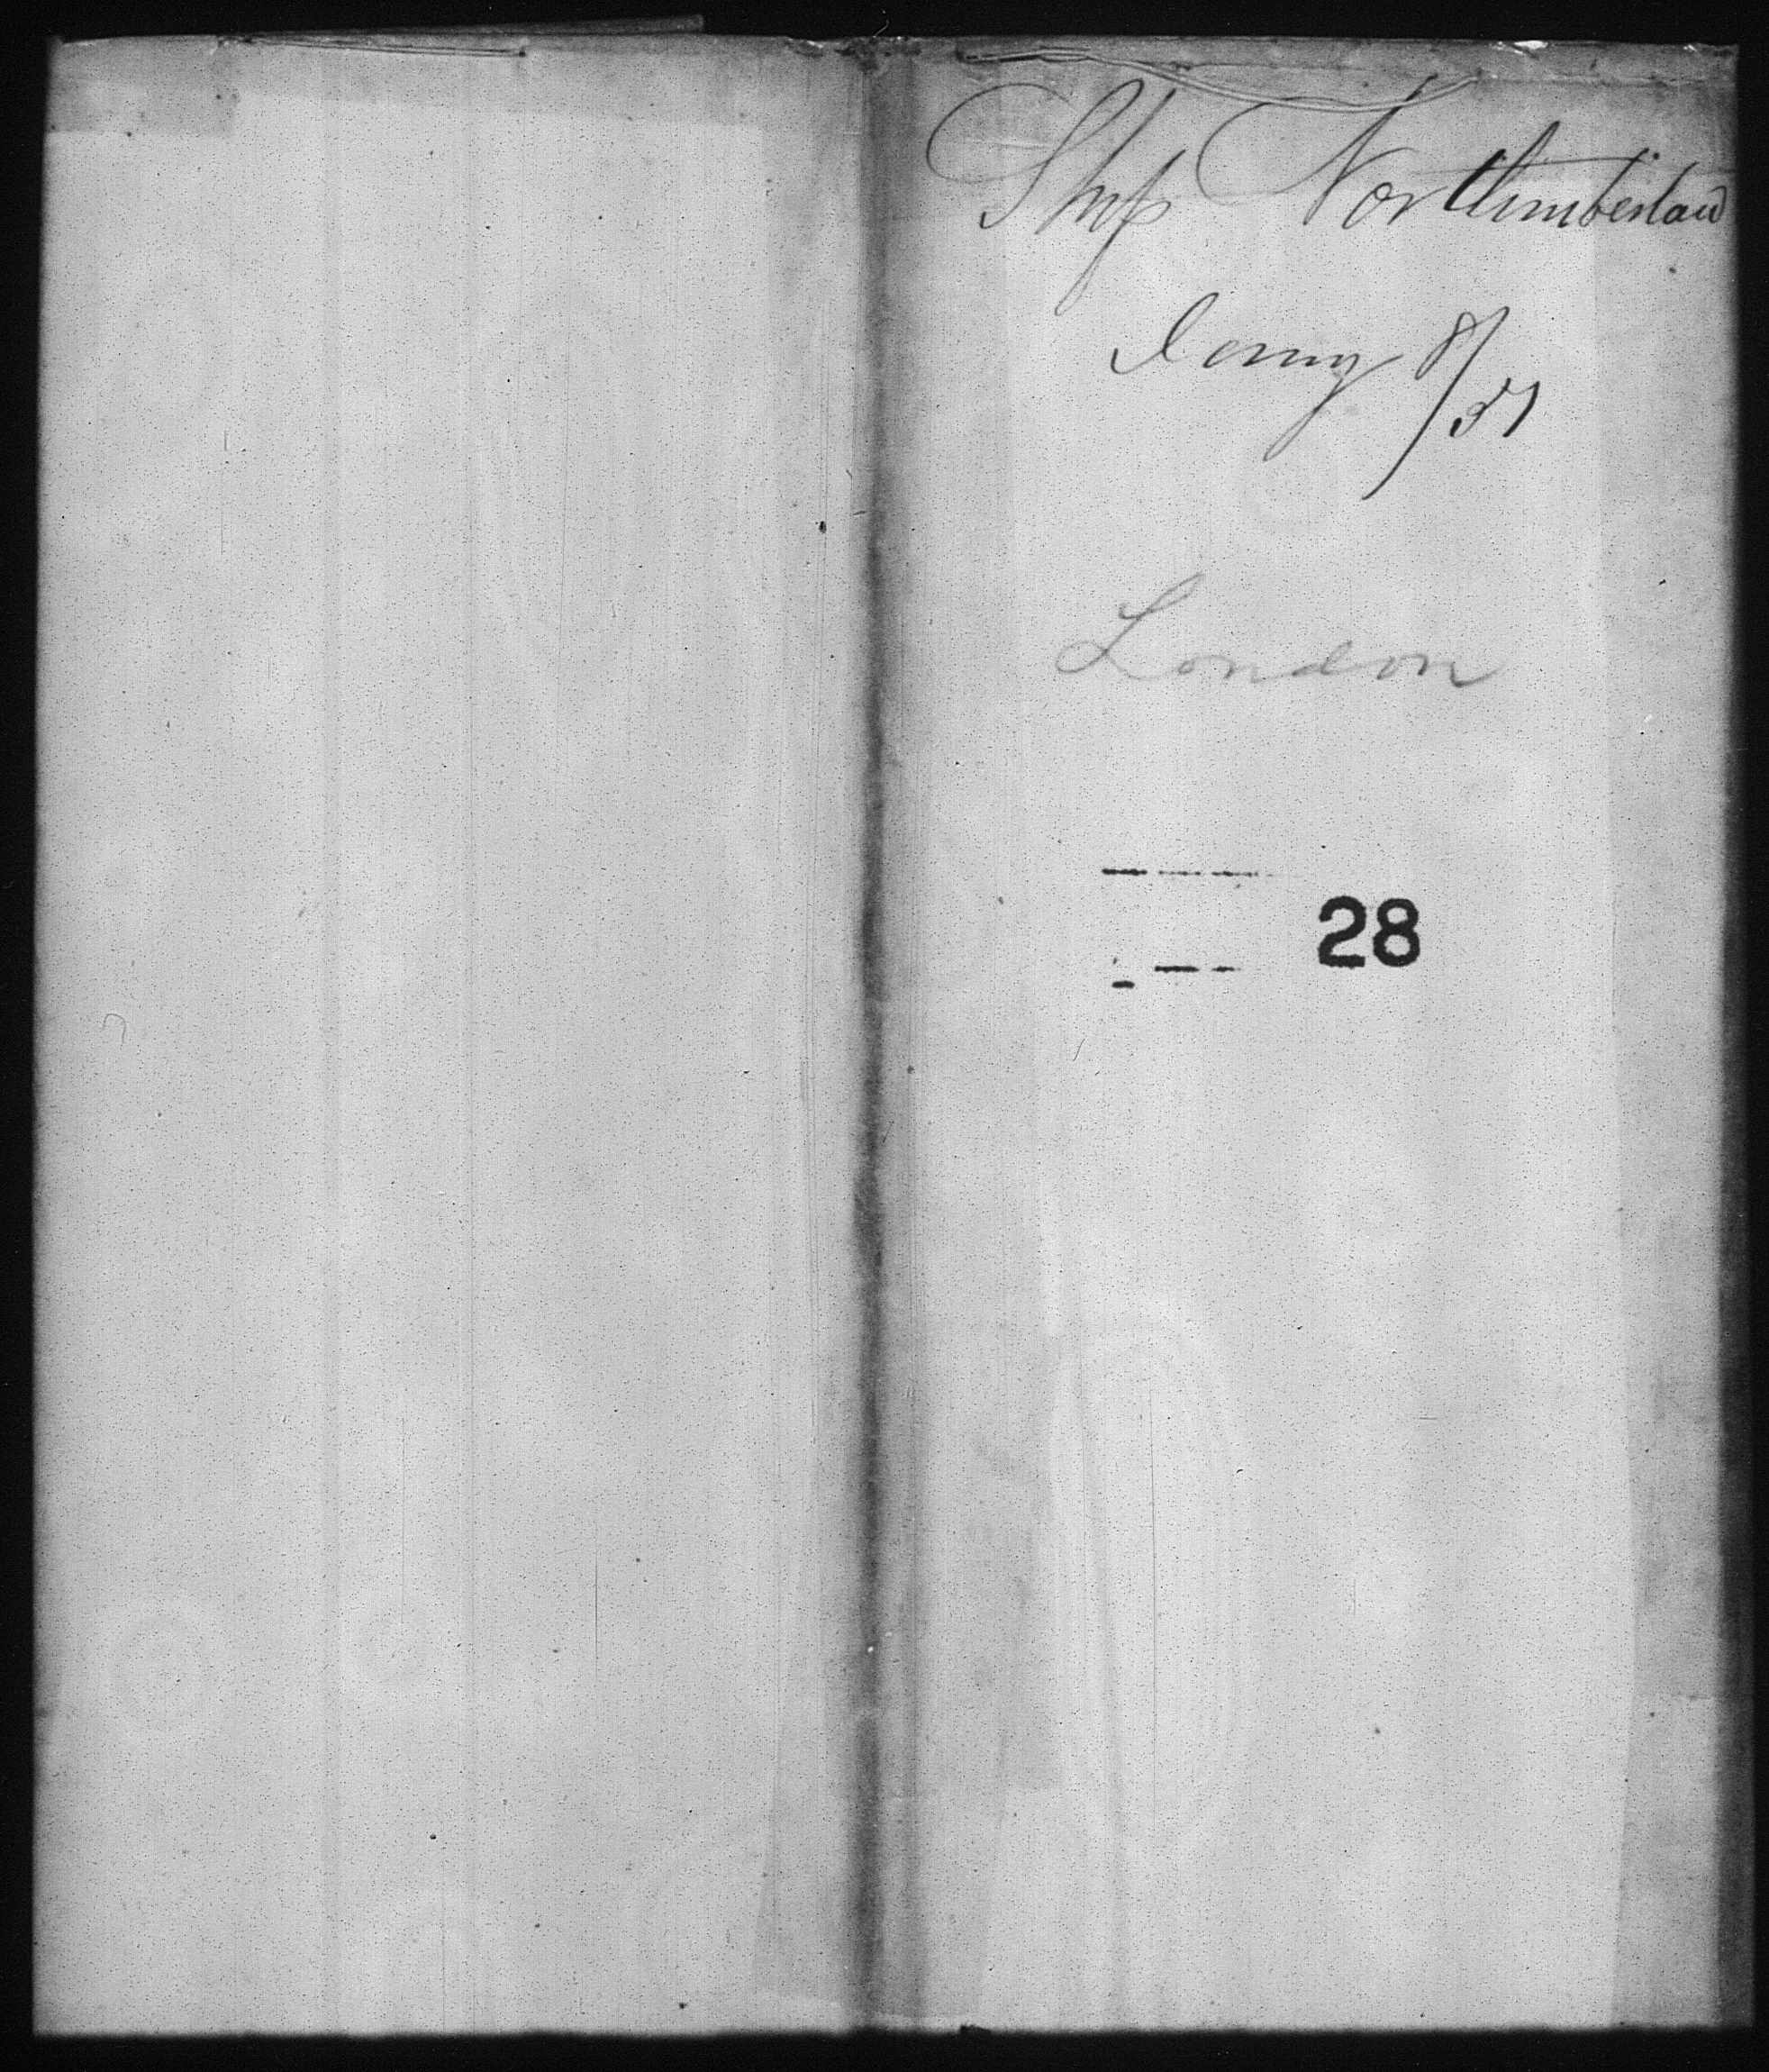 Ship Northumberland
Jany 8/57
London
28